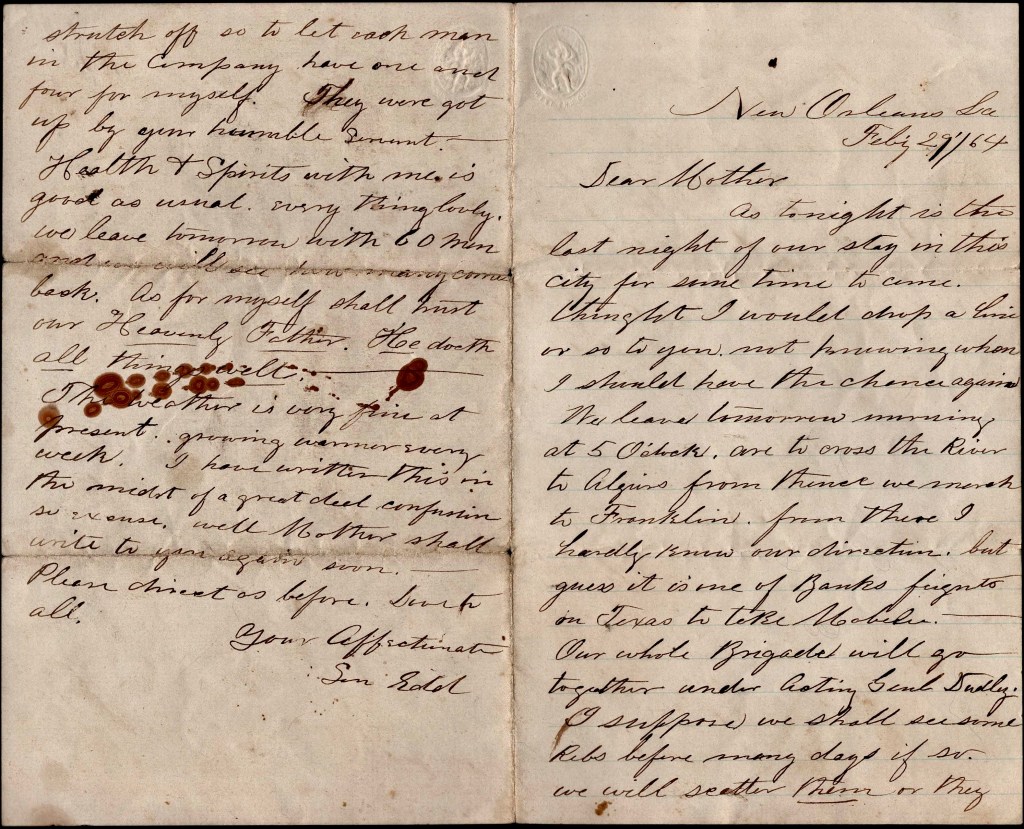 New Orleans La
Feby 29/64
Dear Mother
As tonight is the
last night of our stay in this
city for some time to come.
thought I would drop a line
or so to you. not knowing when
I should have the chance again
We leave tomorrow morning
at 5 O'clock. are to cross the River
to Algiers from thence we march
to Franklin. from there I
hardly know our direction. but
guess it is one of Banks feignts
on Texas to take Mobile.
Our whole Brigade will go
together under Acting Genl Dudley.
I suppose we shall see some
Rebs before many days if so.
we will scatter them or they
stretch off so to let each man
in the Company have one and
four for myself. They were got
up by your humble servant.
Health & Spirits with me is
good as usual. every thing lovly.
we leave tomorrow with 60 men
and we will see how many come
back. As for myself shall trust
our Heavenly Father. He doeth
all things well.
The weather is very fine at
present. growing warmer every
week. I have written this in
the midst of a great deal confusion
so excuse. well Mother shall
write to you again soon.
Please direct as before. Love to
all.
Your Affectionate
Son Edd